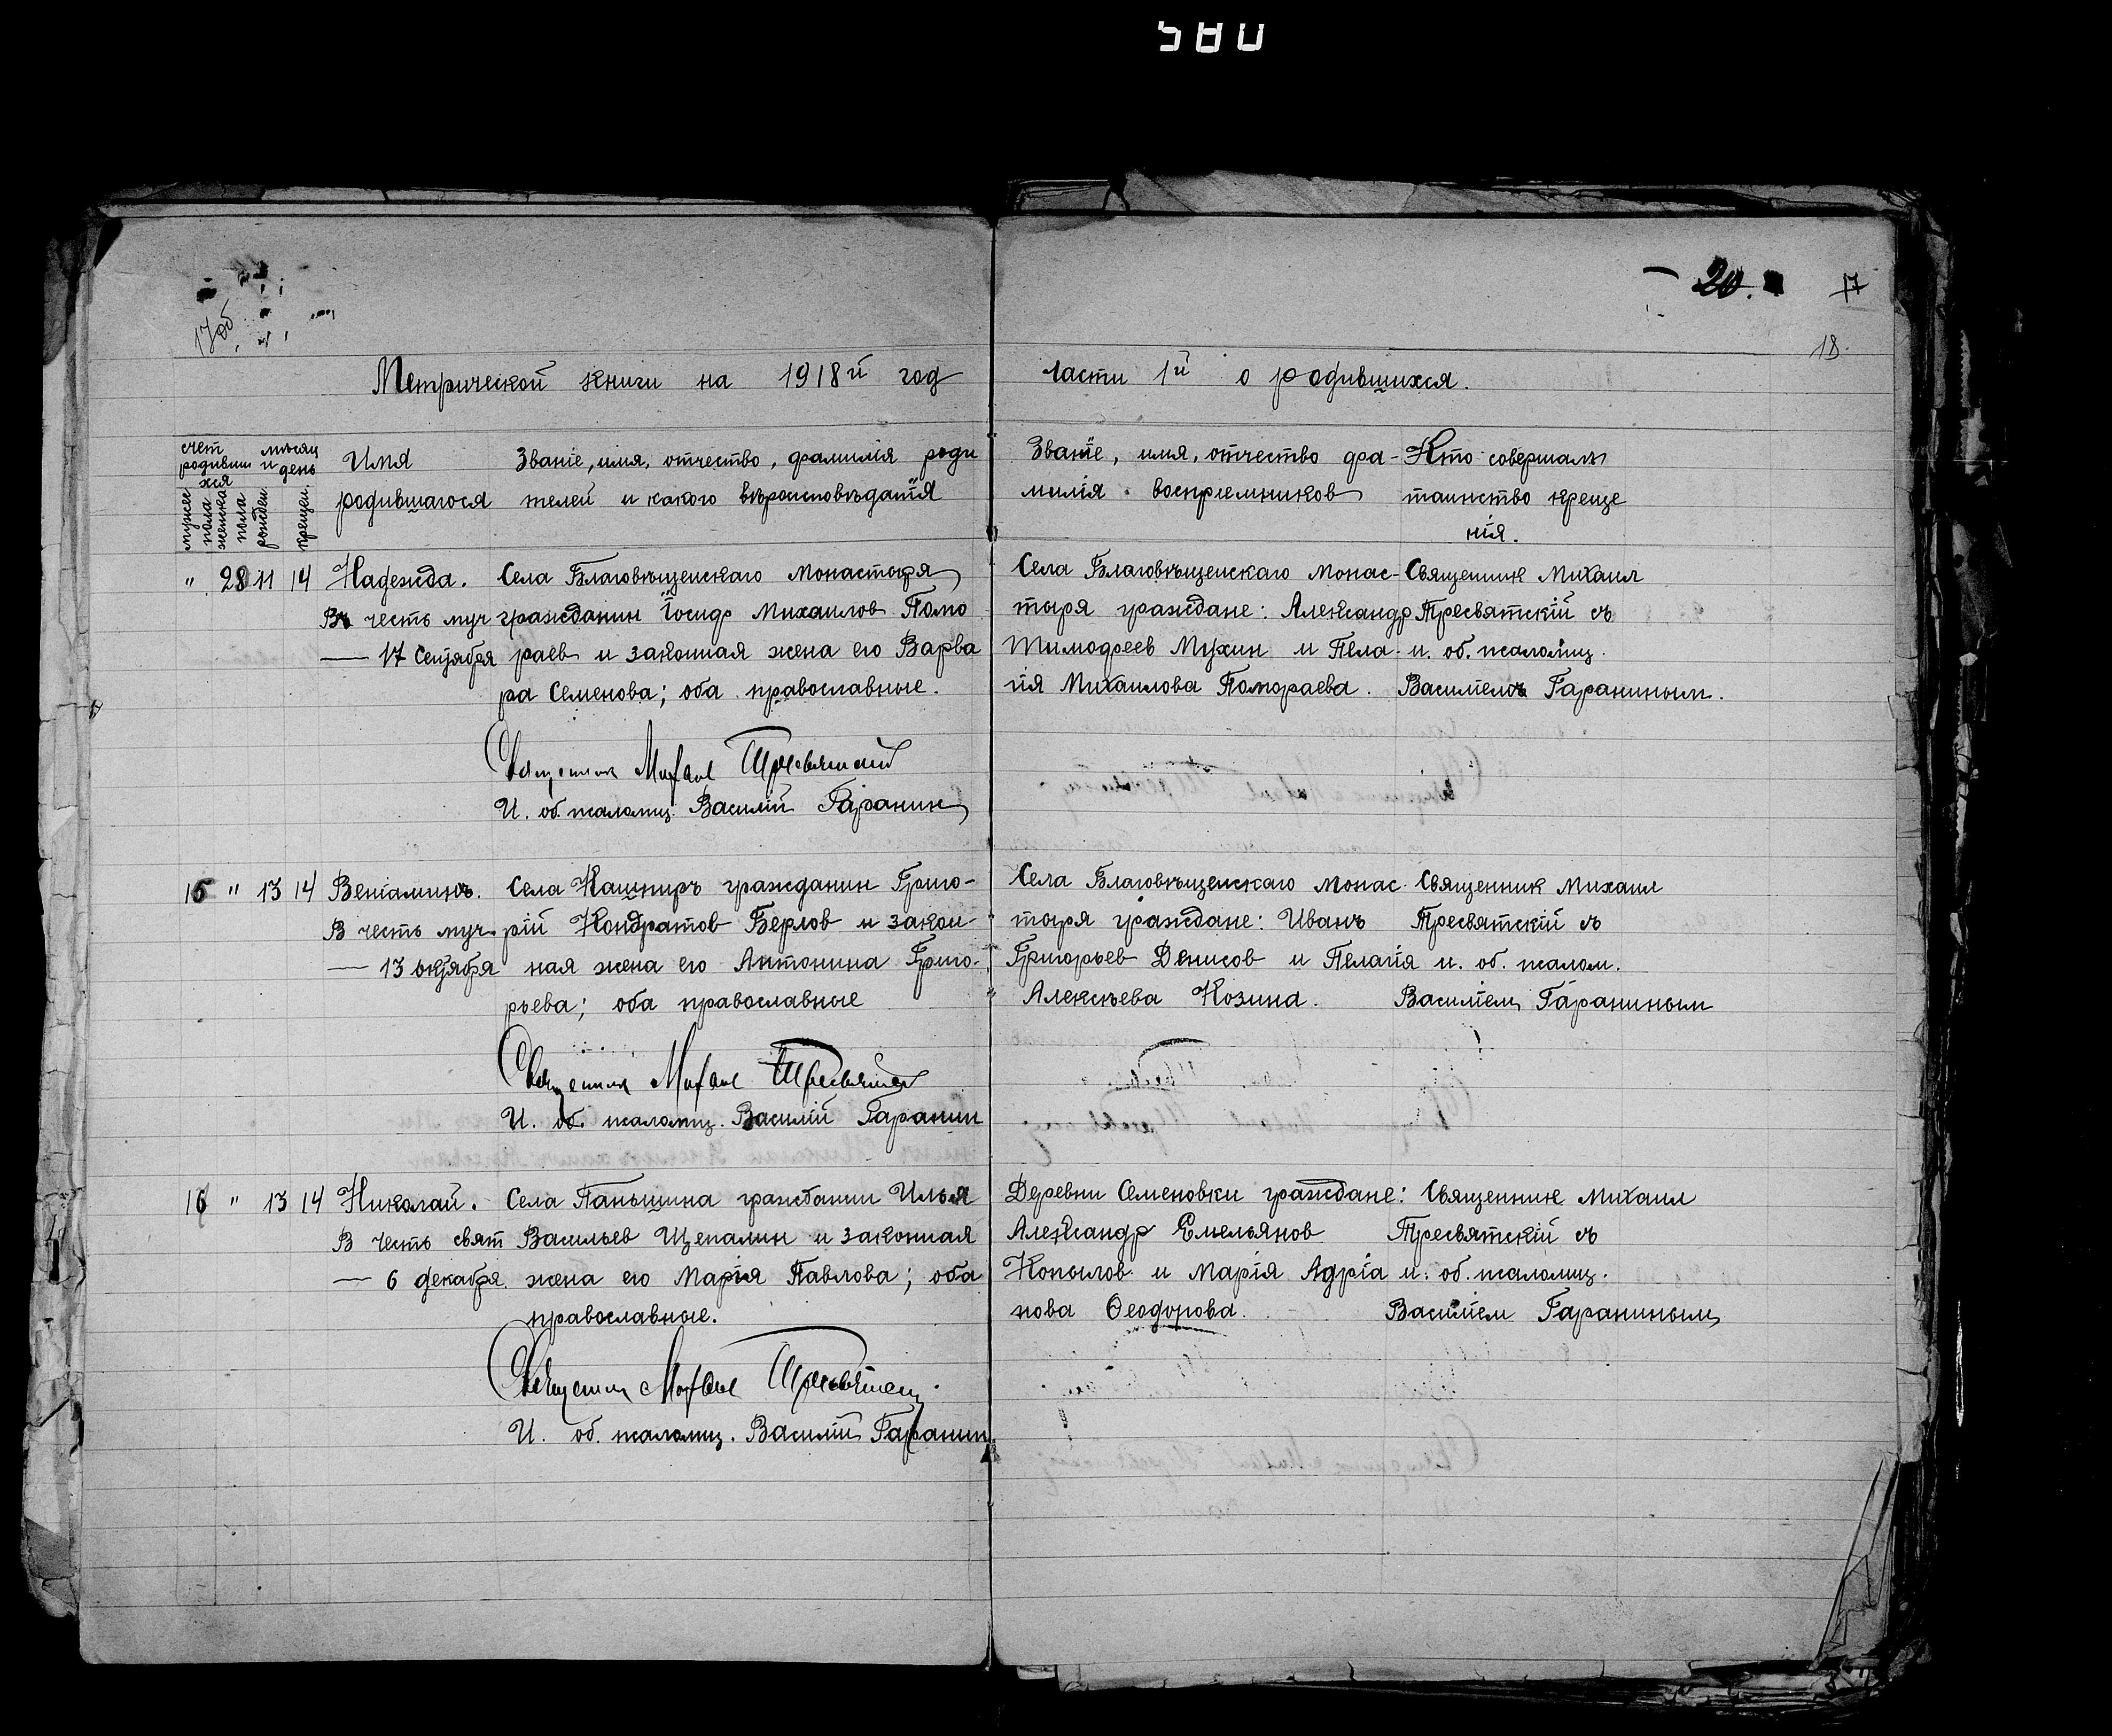 580
17об
20.
17
18.
Метрической книги на 1918й год
части 1й о родившихся.
счет родивших ся
месяц и день
мужес пола
женска пола
рожден.
крещен.
Имя родившагося
Званіе, имя, отчество, фамилія роди
телей и какого вѣроисповѣданія
Званіе, имя, отчество фа-
милія воспріемников
Кто совершалъ
таинство креще
нія.
" 28 11 14 Надежда.
Въ честь муч
— 17 Сентября
Села Благовѣщенскаго Монастыря
гражданин Іосиф Михаилов Помо
раев и законная жена его Варва
ра Семенова; оба православные.
Священник Михаил Тресвятский
И. об. псаломщ. Василій Гаранин
Села Благовѣщенскаго Монас-
тыря граждане: Александр
Тимофеев Мухин и Пела-
гія Михаилова Помораева.
Священник Михаил
Тресвятскій съ
и. об. псаломщ.
Василіемъ Гараниным.
15 " 13 14 Веніаминъ.
В честь муч.
— 13 октября
Села Кашпиръ гражданин Григо-
рій Кондратов Берлов и закон-
ная жена его Антонина Григо-
рьева; оба православные
Священник Михаил Тресвятский
И. об. псаломщ. Василій Гаранин
Села Благовѣщенскаго Монас-
тыря граждане: Иванъ
Григорьев Денисов и Пелагія
Алексѣева Козина.
Священник Михаил
Тресвятскій съ
и. об. псалом.
Василіем Гараниным
16 " 13 14 Николай.
В честь свят
— 6 декабря
Села Паньшина гражданин Илья
Васильев Щепалин и законная
жена его Марія Павлова; оба
православные.
Священник Михаил Тресвятский
И. об. псаломщ. Василій Гаранин
Деревни Семеновки граждане:
Александр Емельянов
Копылов и Марія Адріа
нова Ѳеодорова.
Священник Михаил
Тресвятскій съ
и. об. псаломщ.
Василіем Гараниным